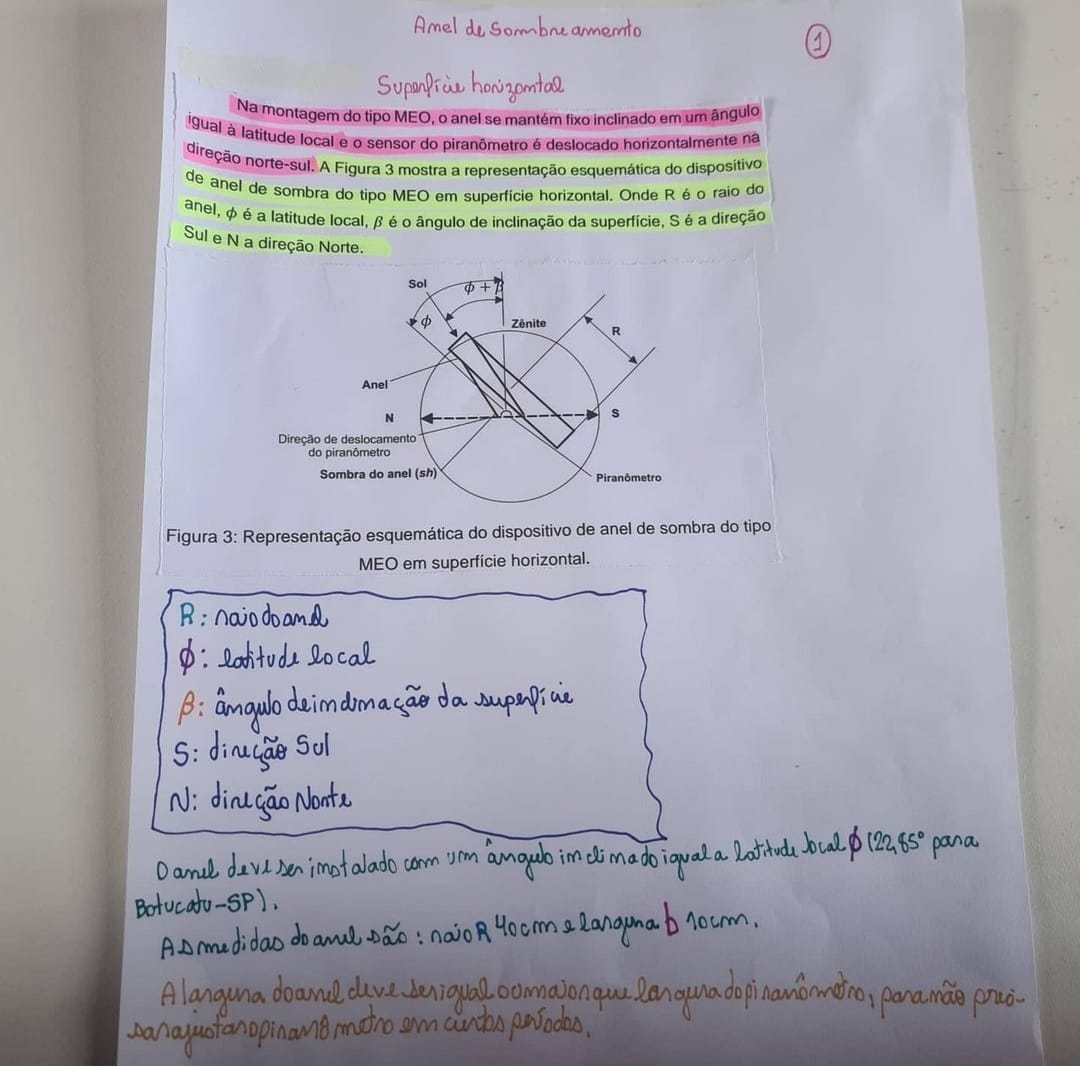 Anel de Sombreamento
1
Superfície horizontal
Na montagem do tipo MEO, o anel se mantém fixo inclinado em um ângulo
igual à latitude local e o sensor do piranômetro é deslocado horizontalmente na
direção norte-sul. A Figura 3 mostra a representação esquemática do dispositivo
de anel de sombra do tipo MEO em superfície horizontal. Onde R é o raio do
anel, ϕ é a latitude local, β é o ângulo de inclinação da superfície, S é a direção
Sul e N a direção Norte.
Sol
ϕ + β
ϕ
Zênite
R
Anel
N
S
Direção de deslocamento
do piranômetro
Sombra do anel (sh)
Piranômetro
Figura 3: Representação esquemática do dispositivo de anel de sombra do tipo
MEO em superfície horizontal.
R: raio do anel
ϕ: latitude local
β: ângulo de inclinação da superfície
S: direção Sul
N: direção Norte
O anel deve ser instalado com um ângulo inclinado igual a latitude local ϕ (22,85° para
Botucatu-SP).
As medidas do anel são: raio R 40cm e largura b 10cm.
A largura do anel deve ser igual ou maior que largura do piranômetro, para não preci-
sar ajustar o piranômetro em curtos períodos.